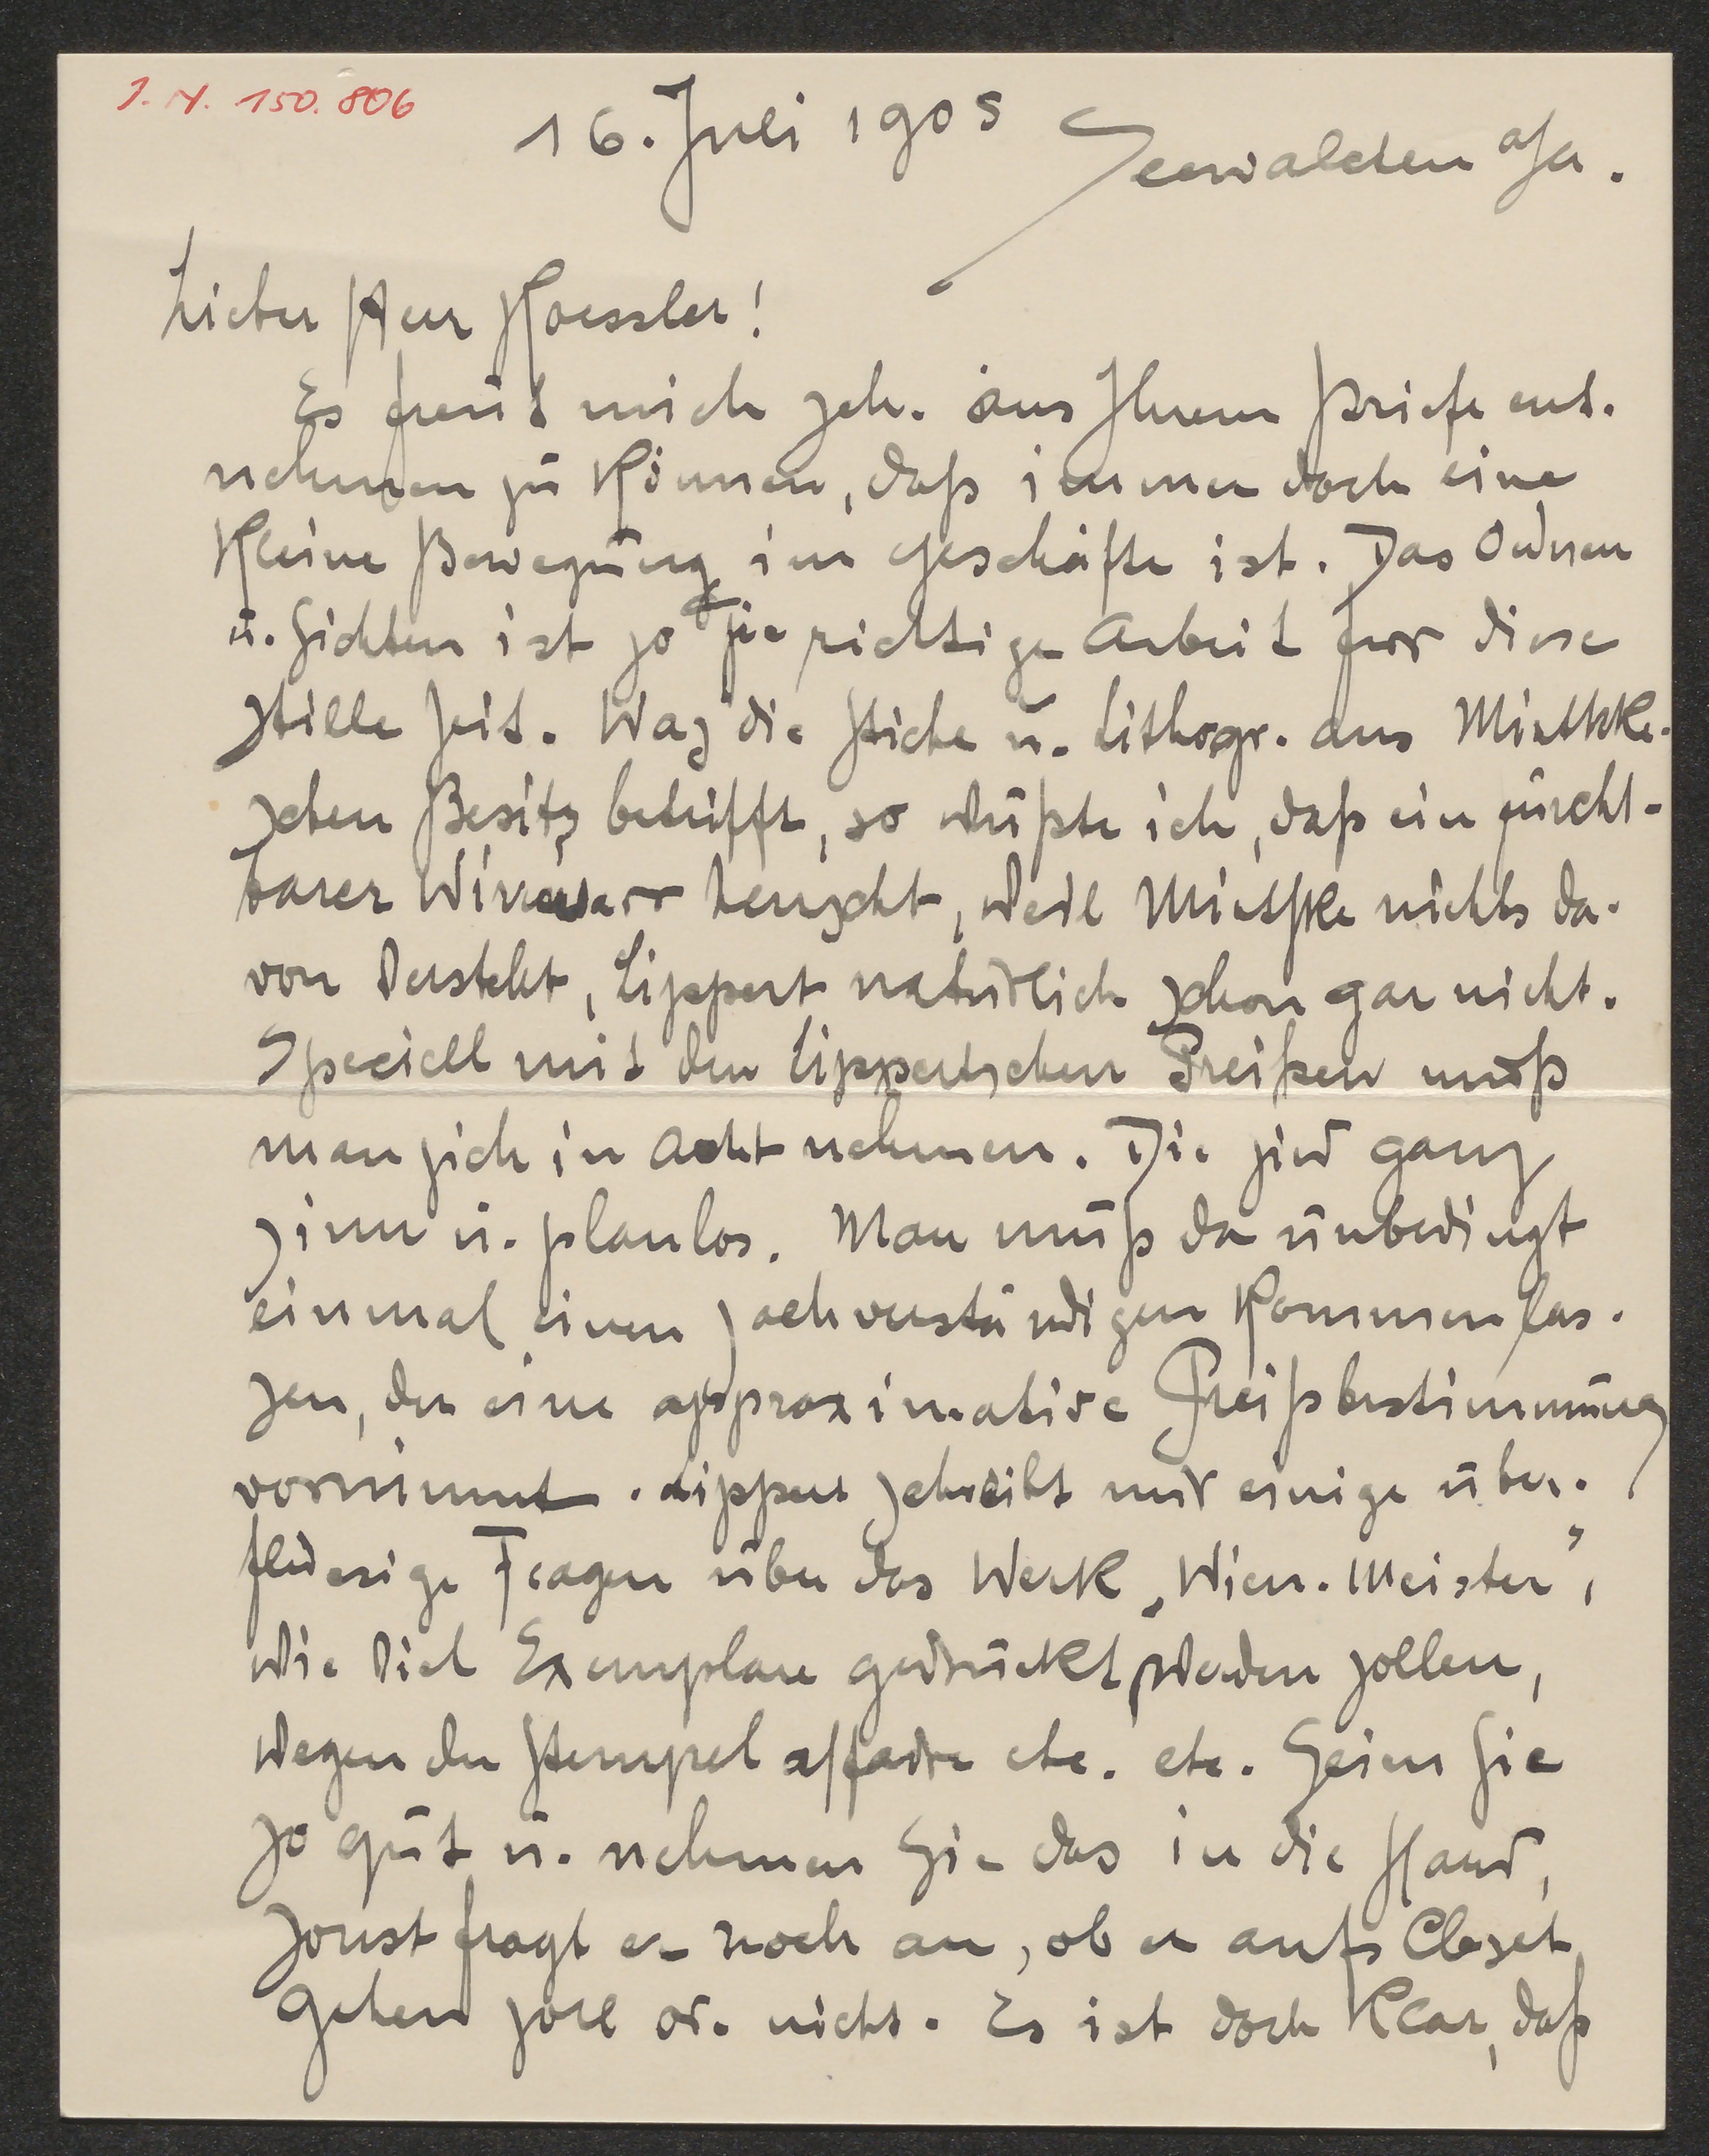 J. N. 150.806
16. Juli 1905
Seewalchen a/A.
Lieber Herr Roessler!
Es freut mich seh. aus Ihrem Briefe ent-
nehmen zu können, daß immer doch eine
kleine Bewegung im Geschäfte ist. Das Ordnen
u. Sichten ist so die richtige Arbeit für diese
stille Zeit. Was die Stiche u. Lithogr. aus Miethke-
schen Besitz betrifft, so wußte ich, daß ein furcht-
barer Wirrwarr herrscht, weil Miethke nichts da-
von versteht, Lippert natürlich schon gar nicht.
Speciell mit den Lippertschen Preißen muß
man sich in Acht nehmen. Die sind ganz
sinn u. planlos. Man muß da unbedingt
einmal einen Sachverständigen kommen las-
sen, der eine approximative Preißbestimmung
vornimmt. Lippert schreibt mir einige über-
flüssige Fragen über das Werk „Wien. Meister",
wie viel Exemplare gedruckt werden sollen,
wegen der Stempel affaire etc. etc. Seien Sie
so gut u. nehmen Sie das in die Hand,
sonst fragt er noch an, ob er aufs Closet
gehen soll od. nicht. Es ist doch klar, daß